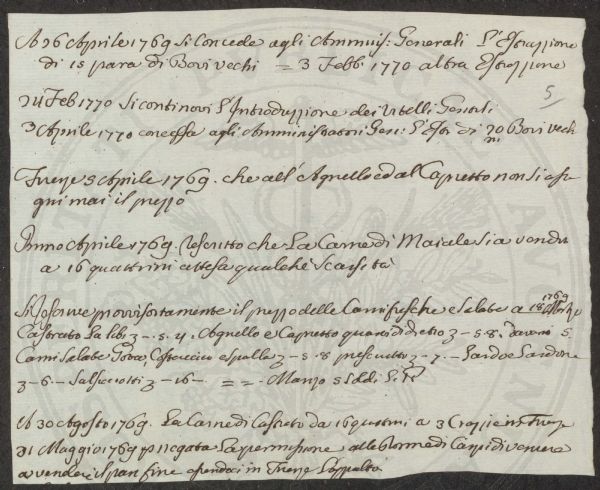 A 26 Aprile 1769 Si Concede agli Amminis: Generali l'Estrazzione
di 15 para di Bovi Vechi = 3 Febb 1770 altra Estrazzione
5
24 Feb 1770 Si continovi l'Introduzzione dei Vitelli
3 Aprile 1770 concessa agli Amministratori Gen: l'Est: di 20 Bovi vech
ni
Firenze 3 Aprile 1769. che all'Agnello ed al Capretto non si
qui mai il prezzo
Primo Aprile 1769. Rescritto che La Carne di Maiale Sia vendu
a 16 quattrini attesa qualche Scarsità
provvisoriamente il prezzo delle Carni fresche e Salate a 18 1769
Castrato La lib: 3 - 5. 4. Agnello e Capretto quarti di dietro 3 - 5. 8. davanti 5
Carni Salate spalla 3 - 5. 8 presciutto 3 - 7. - Lardo e Lardone
3 - 6 - Salsicciotti 3 - 16 - = = . Manzo Soldi
A 30 Agosto 1769. La Carne di Castrato da 16 quattrini a 3 Crazie in Firenze
31 Maggio 1769 negata La permissione alle Donne di Carpi di venire
a vendere il pan fine in Firenze L'appalto